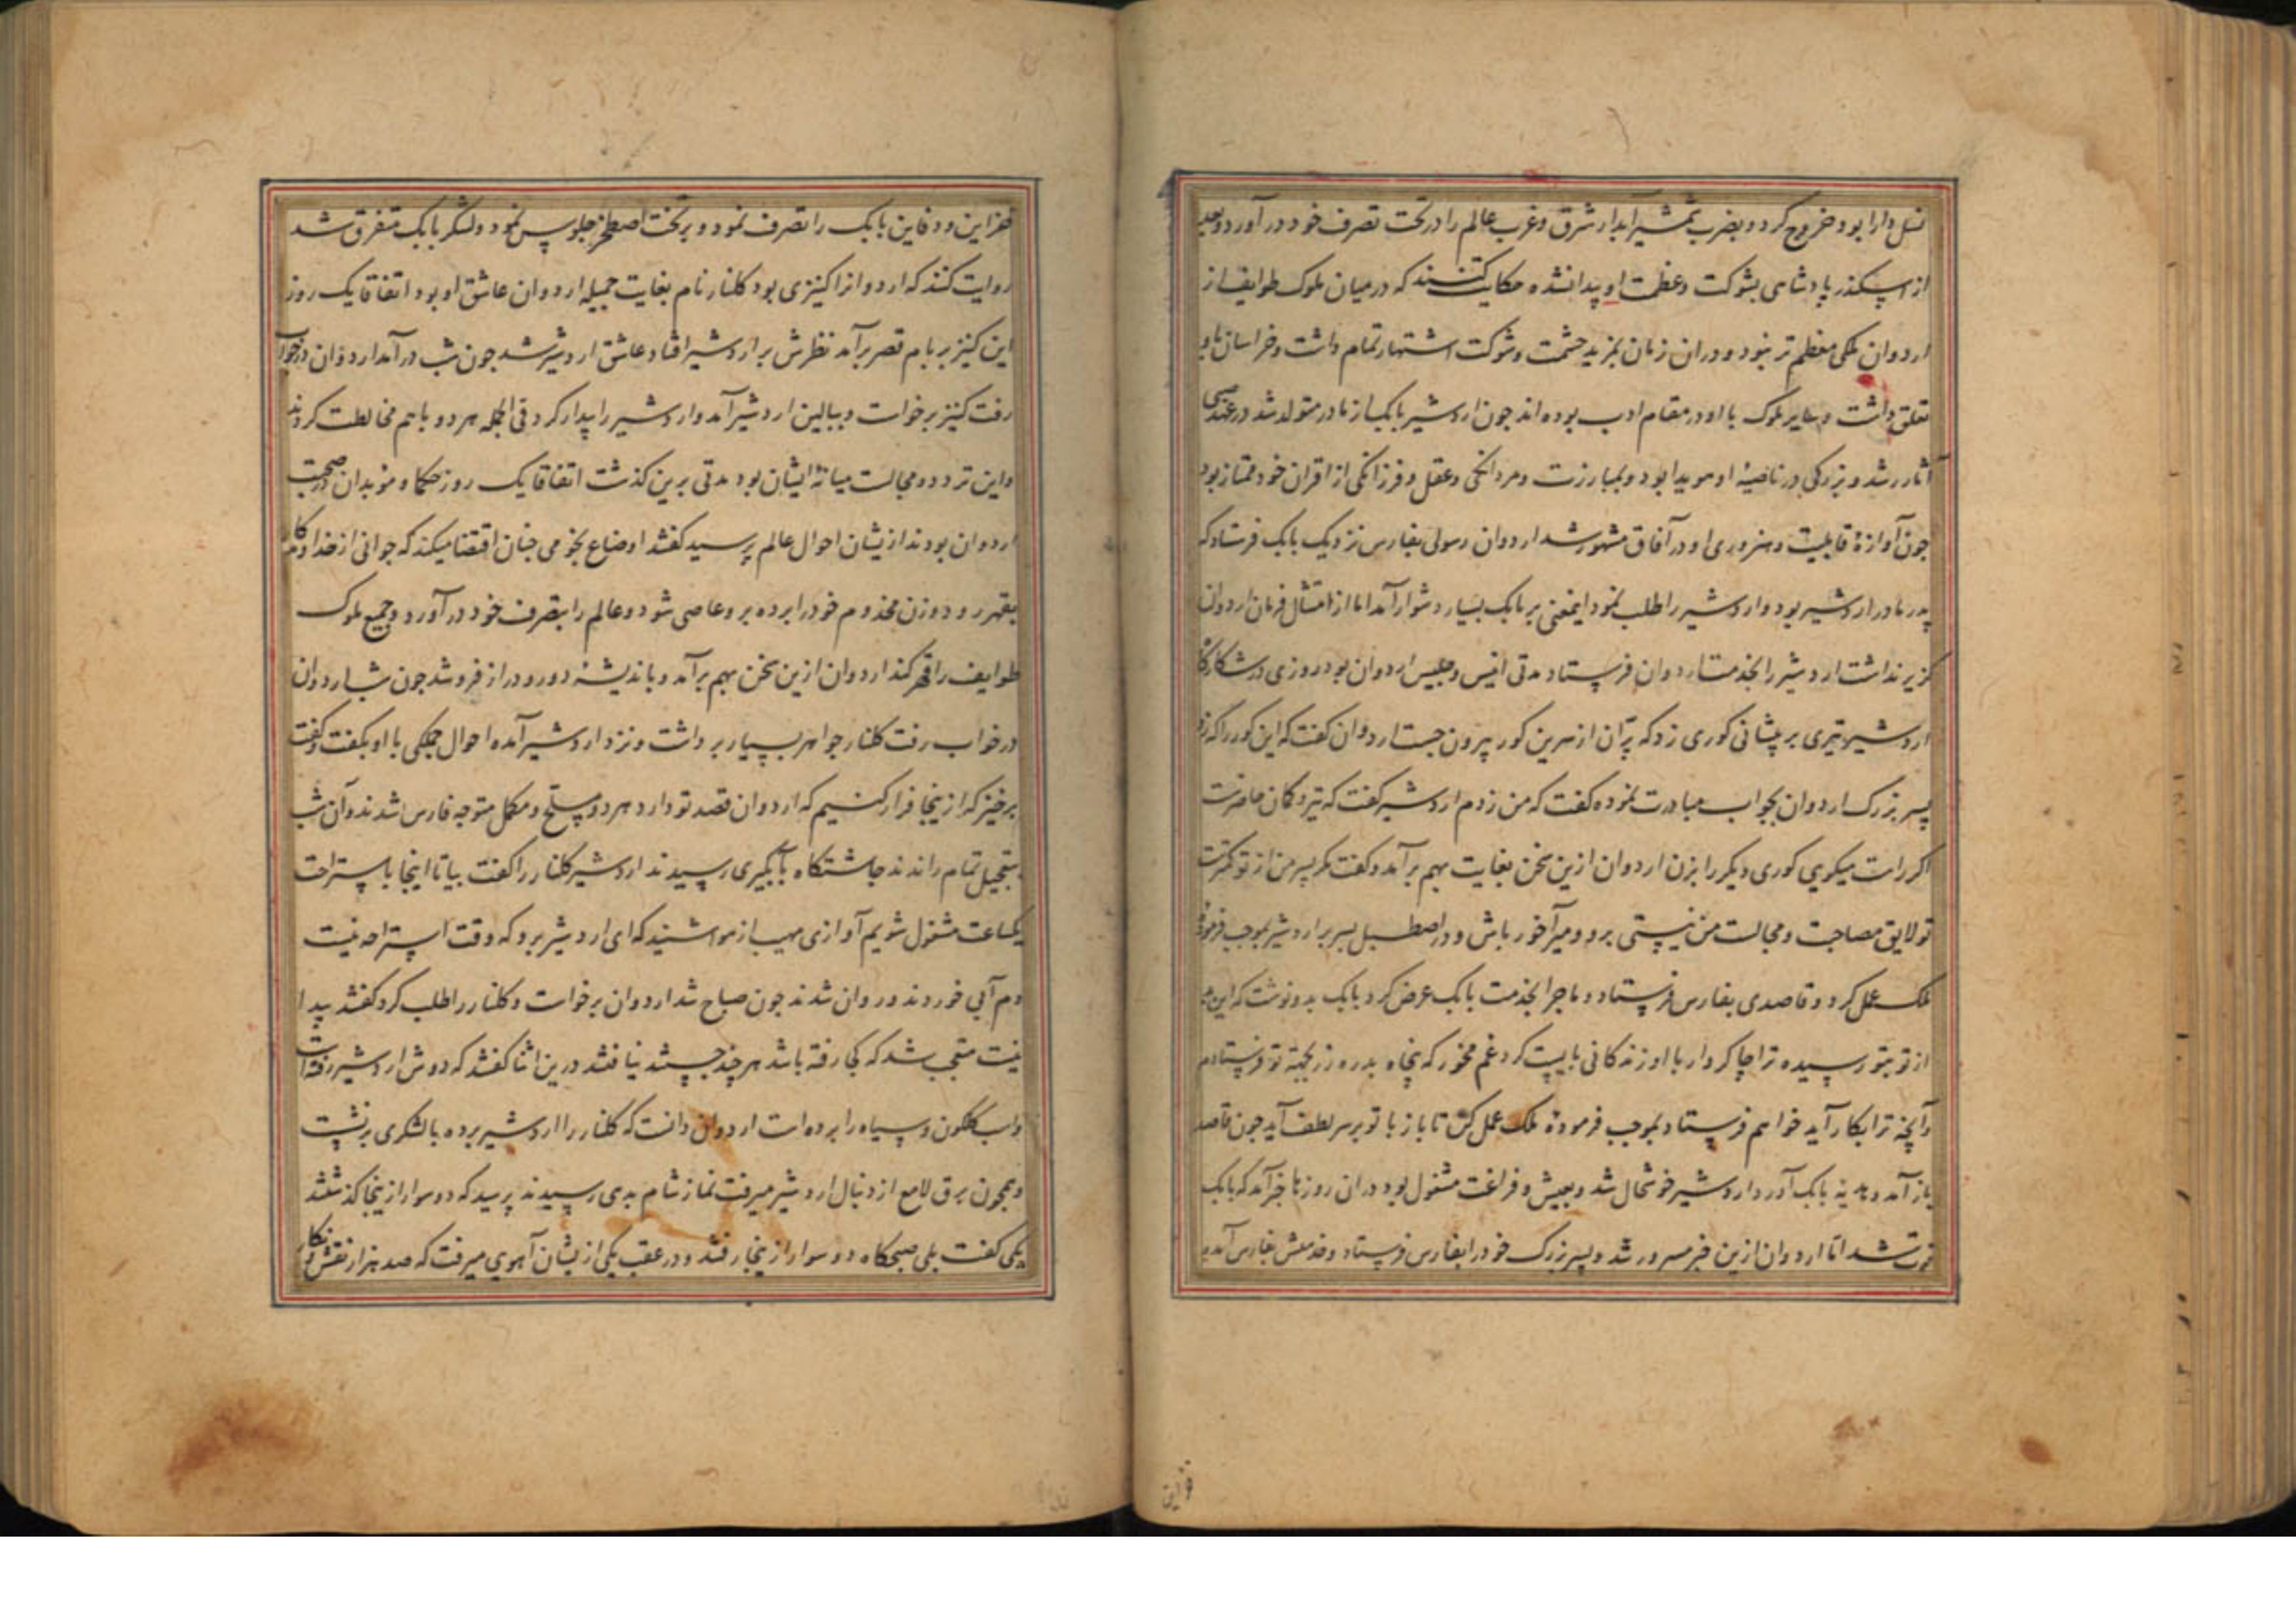 نسل دارا بود خروج کرد و بضرب شمشیر آبدار شرق و غرب عالم را در تحت تصرف خود در آورد و بعد
از اسکندر پادشاهی بشوکت و عظمت او پیدا نشده حکایت کنند که در میان ملوک طوایف از
اردوان ملکی معظم تر نبود و در ان زمان بمزید حشمت و شوکت اشتهار تمام داشت و خراسان باو
تعلق داشت و سایر ملوک با او در مقام ادب بوده اند جون اردشیر بابک از مادر متولد شد در عهد صبی
آثار رشد و بزرکی در ناصیهٔ او هویدا بود و بمبارزت و مردانکی و عقل و فرزانکی از اقران خود ممتاز بود
جون آوازهٔ قابلیت و هنروری او در آفاق مشهور شد اردوان رسولی بفارس نزدیک بابک فرستاد که
پدر مادر اردشیر بود و اردشیر را طلب نمود اینمعنی بر بابک بسیار دشوار آمد اما از امتثال فرمان اردوان
کزیر نداشت اردشیر را بخدمت اردوان فرستاد مدتی انیس و جلیس اردوان بود روزی در شکارگاه
اردشیر تیری بر پیشانی کوری زد که پرّان از سرین کور بیرون جست اردوان کفت که این کور را که زد
پسر بزرک اردوان بجواب مبادرت نموده کفت که من زدم اردشیر کفت که تیر و کمان حاضرست
اکر راست میکویی کوری دیکر را بزن اردوان ازین سخن بغایت بهم برآمد و کفت مکر پسر من از تو کمترست
تو لایق مصاحبت و مجالست من نیستی برو و میرآخور باش و در اصطبل بسر بر اردشیر بموجب فرمودهٔ
ملک عمل کرد و قاصدی بفارس فرستاد و ماجرا بخدمت بابک عرض کرد بابک بدو نوشت که این
از تو بتو رسیده ترا چاکروار با او زندکانی بایست کرد غم مخور که پنجاه بدره زر بجهة تو فرستادم
و آنچه ترا بکار آید خواهم فرستاد بموجب فرمودهٔ ملک عمل کن تا باز با تو بر سر لطف آید جون قاصد
باز آمد و هدیه بابک آورد اردشیر خوشحال شد و بعیش و فراغت مشغول بود در ان روزها خبر آمد که بابک
فوت شد اما اردوان ازین خبر مسرور شد و پسر بزرک خود را بفارس فرستاد و خدمتش بفارس آمده
خزاین
خزاین و دفاین بابک را تصرف نمود و بر تخت اصطخر جلوس نمود و لشکر بابک متفرق شد
روایت کنند که اردوانرا کنیزی بود کلنار نام بغایت جمیله اردوان عاشق او بود اتفاقا یک روز
این کنیز بر بام قصر برآمد نظرش بر اردشیر افتاد عاشق اردشیر شد جون شب درآمد اردوان در خواب
رفت کنیز برخواست و ببالین اردشیر آمد و اردشیر را بیدار کرد فی الجمله هر دو باهم مخالطت کردند
و این تردد و مجالست میانهٔ ایشان بود مدتی برین کذشت اتفاقا یک روز حکما و موبدان در صحبت
اردوان بودند ازیشان احوال عالم پرسید کفتند اوضاع نجومی جنان اقتضا میکند که جوانی از خداوندکار
بقهر رود و زن مخدوم خود را برده برو عاصی شود و عالم را بتصرف خود در آورد و جمیع ملوک
طوایف را قهر کند اردوان ازین سخن بهم برآمد و باندیشهٔ دور و دراز فرو شد جون شب اردوان
در خواب رفت کلنار جواهر بسیار برداشت و نزد اردشیر آمده احوال جملکی با او بکفت و کفت
برخیز که ازینجا فرار کنیم که اردوان قصد تو دارد هر دو مسلح و مکمل متوجه فارس شدند و آن شب
بتعجیل تمام راندند جاشتکاه بآبگیری رسیدند اردشیر کلنار را کفت بیا تا اینجا باستراحت
یکساعت مشغول شویم آوازی مهیب از هوا شنید که ای اردشیر برو که وقت استراحه نیست
دم آبی خوردند و روان شدند جون صباح شد اردوان برخواست و کلنار را طلب کرد کفتند پیدا
نیست متعجب شد که کجا رفته باشد هر چند جستند نیافتند درین اثنا کفتند که دوش اردشیر رفته است
و اسب کلکون و سیاه را برده است اردوان دانست که کلنار را اردشیر برده با لشکری برنشست
و همچون برق لامع از دنبال اردشیر میرفت نماز شام بدهی رسیدند پرسید که دو سوار ازینجا کذشتند
یکی کفت بلی صبحکاه دو سوار ازینجا رفتند و در عقب یکی ازیشان آهویی میرفت که صد هزار نقش و نکار